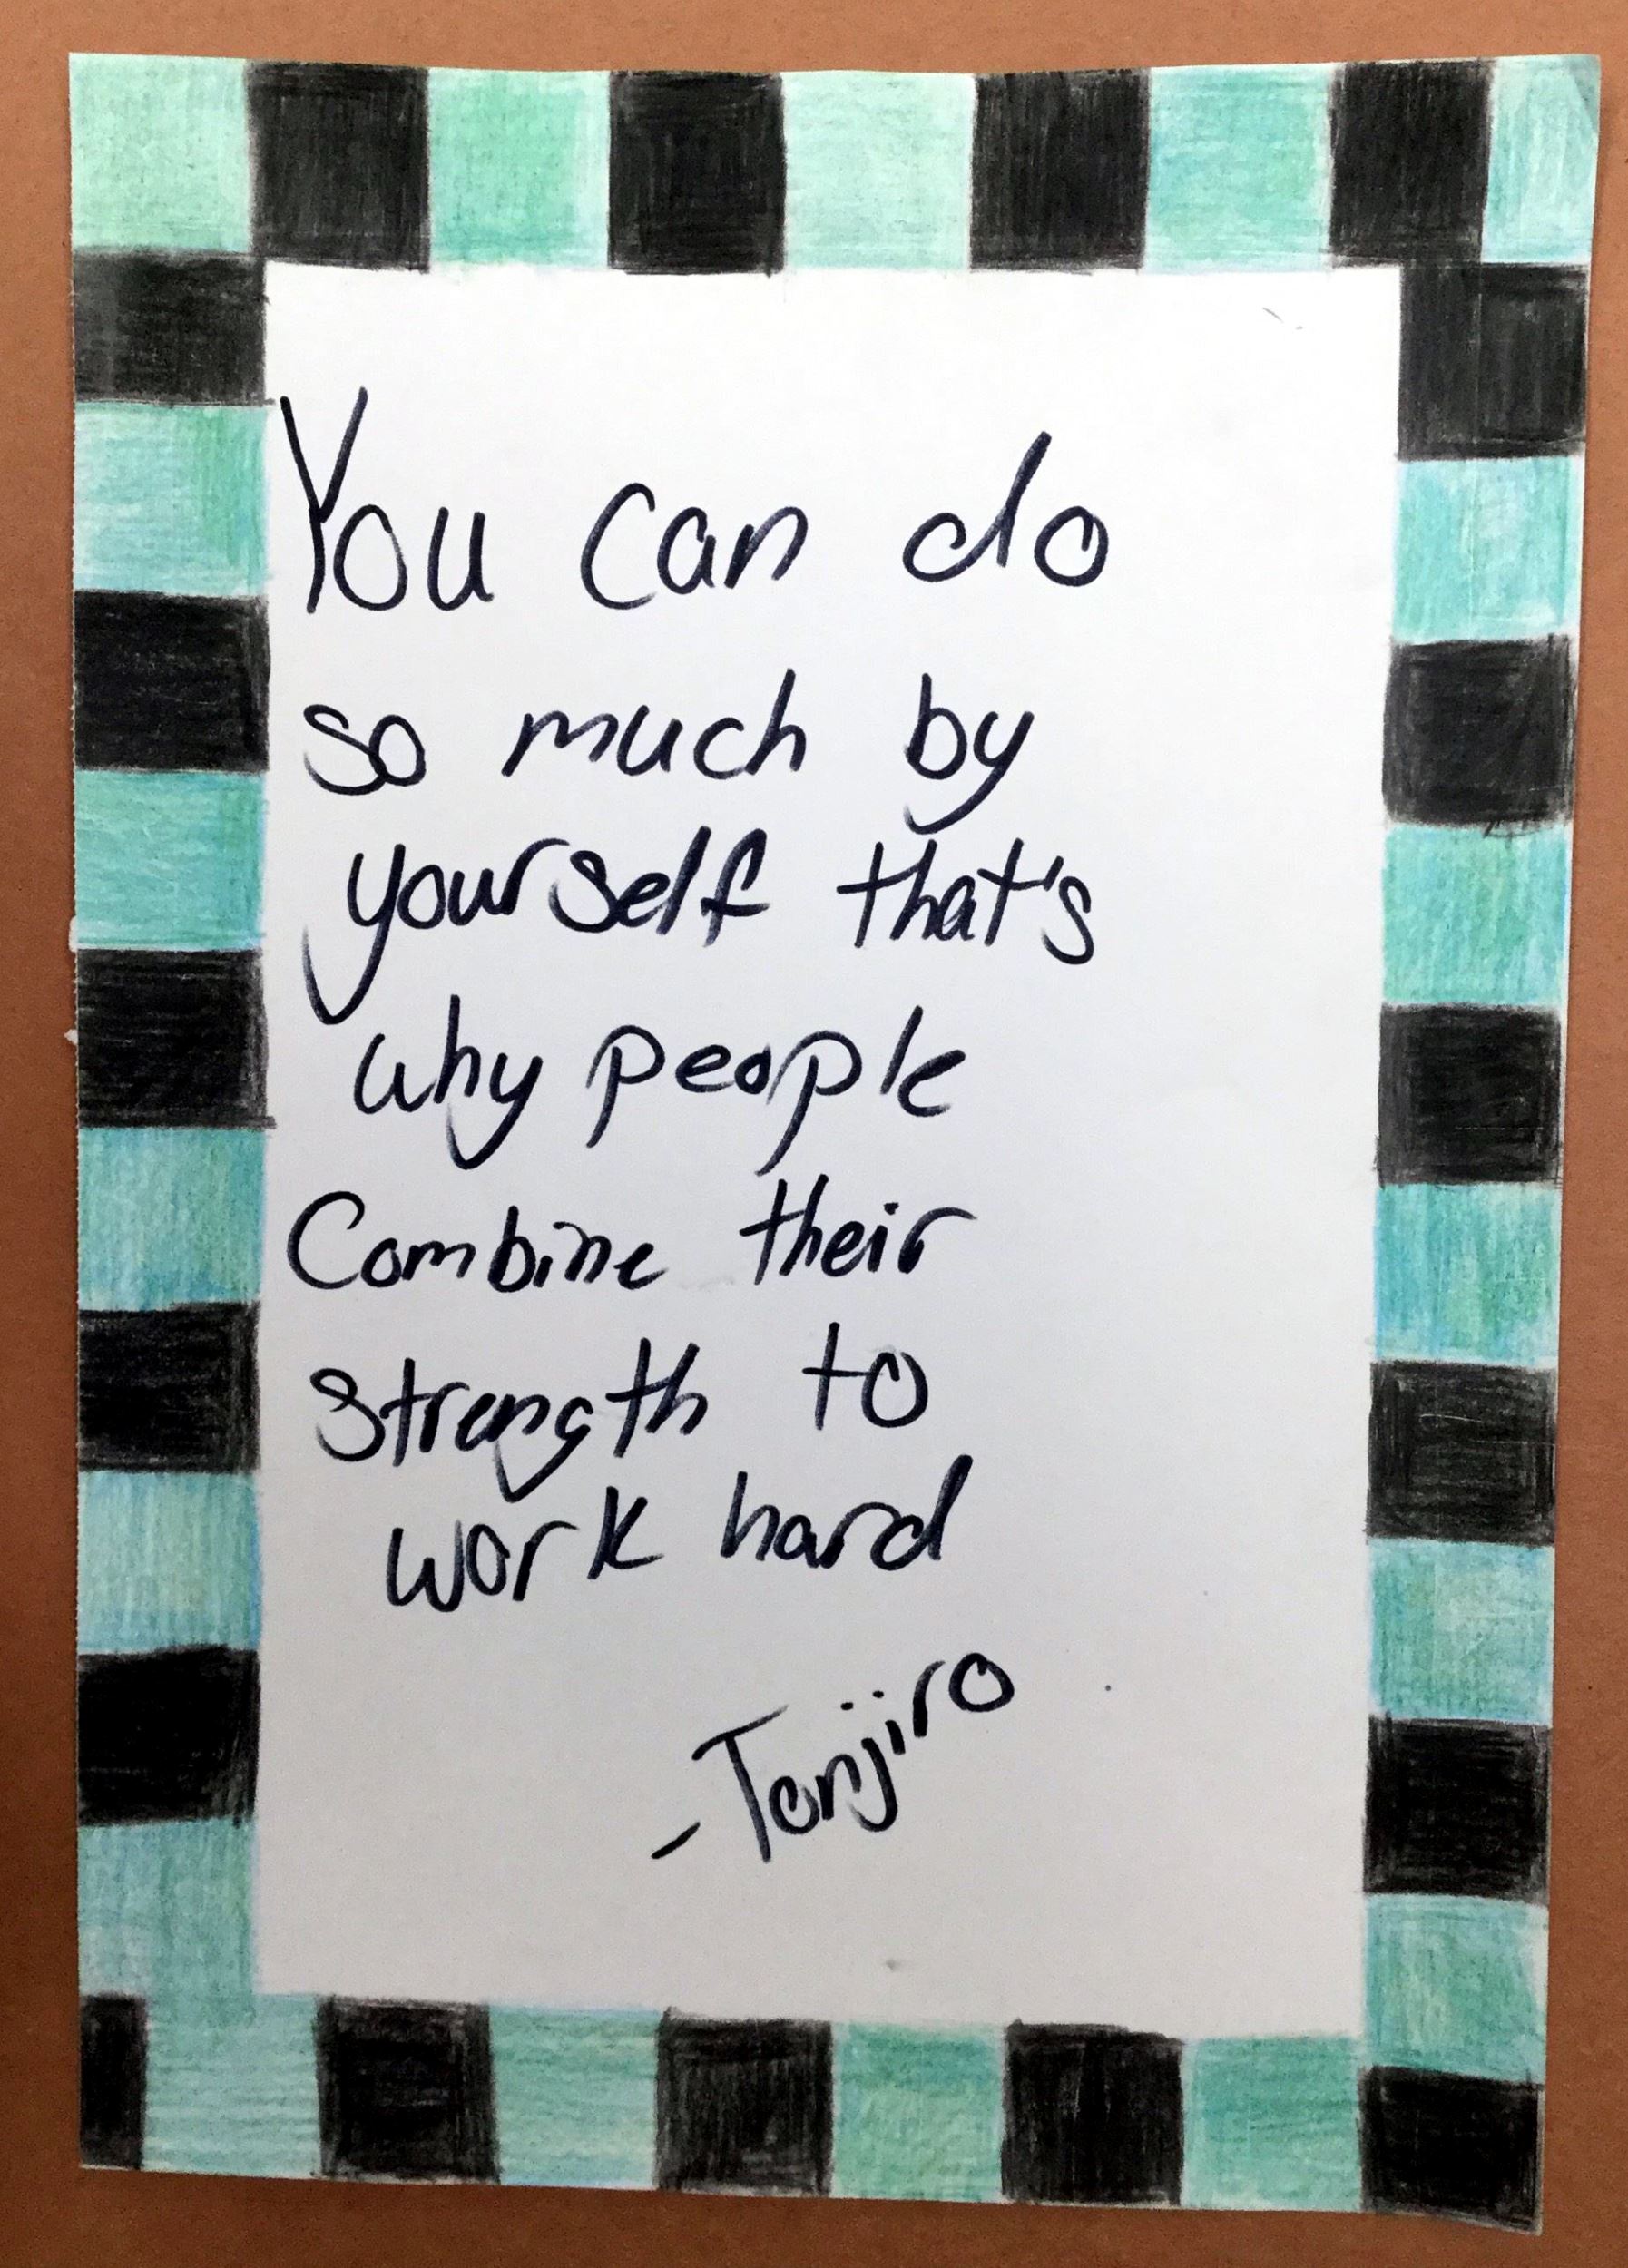 You can do
so much by
yourself that's
why people
Combine their
strength to
work hard
-Tanjiro